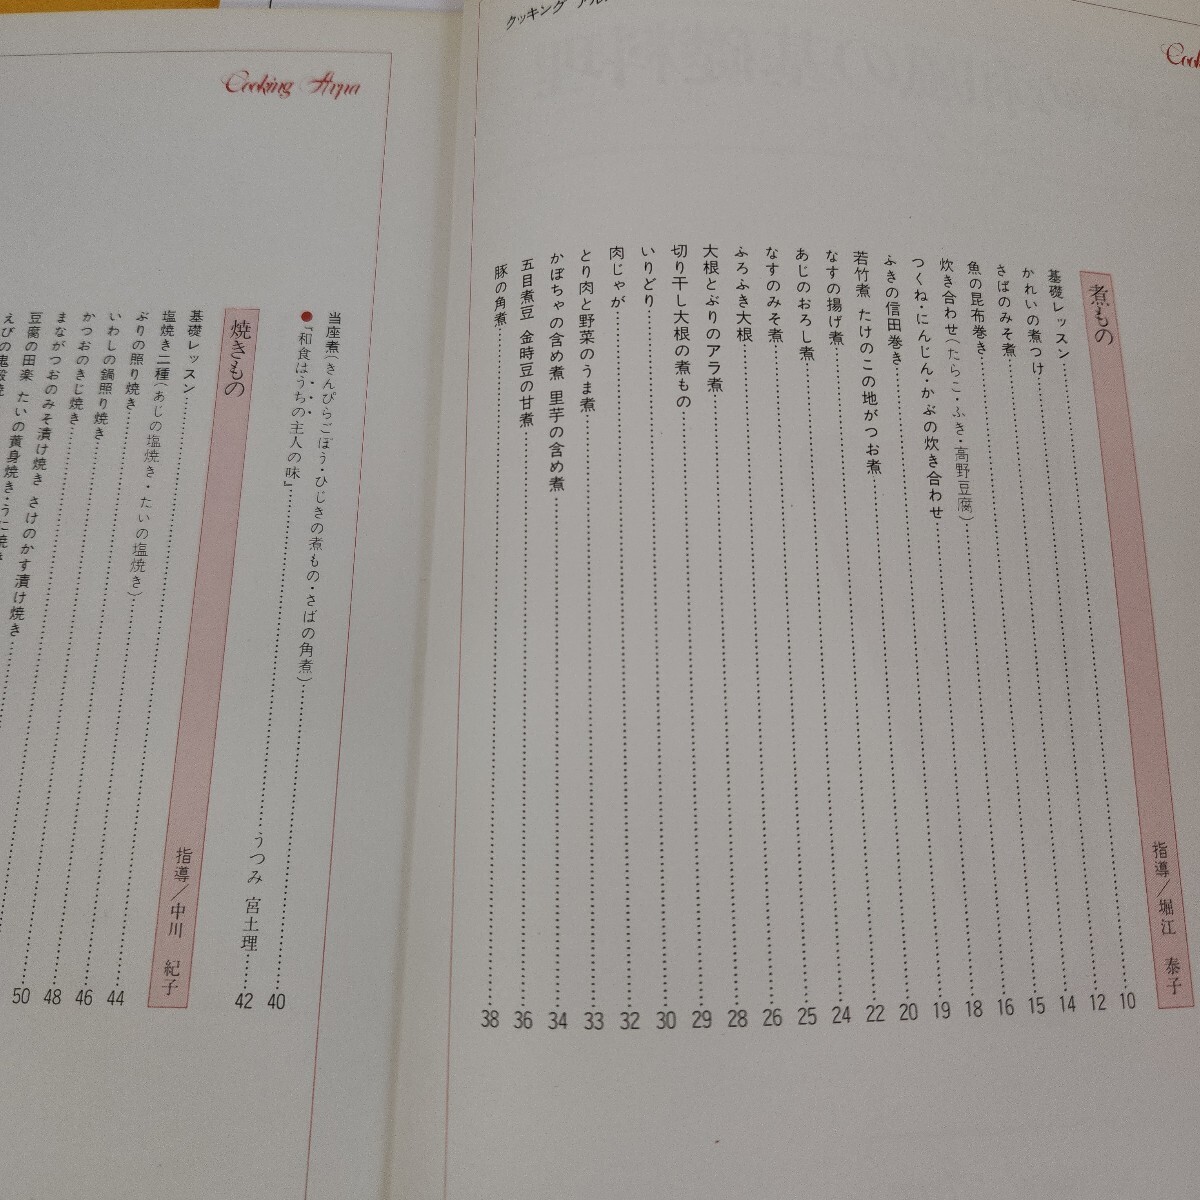 クッキング アル
Cooking Arpa
煮もの 指導／堀江 泰子
基礎レッスン……10
かれいの煮つけ……12
さばのみそ煮……14
魚の昆布巻き……15
炊き合わせ(たらこ・ふき・高野豆腐)……16
つくね・にんじん・かぶの炊き合わせ……18
ふきの信田巻き……19
若竹煮 たけのこの地がつお煮……20
なすの揚げ煮……22
あじのおろし煮……24
なすのみそ煮……25
ふろふき大根……26
大根とぶりのアラ煮……28
切り干し大根の煮もの……29
いりどり……30
肉じゃが……32
とり肉と野菜のうま煮……33
かぼちゃの含め煮 里芋の含め煮……34
五目煮豆 金時豆の甘煮……36
豚の角煮……38
当座煮(きんぴらごぼう・ひじきの煮もの・さばの角煮)……40
●『和食はうちの主人の味』……うつみ 宮土理……42
焼きもの 指導／中川 紀子
基礎レッスン……44
塩焼き二種(あじの塩焼き・たいの塩焼き)……46
ぶりの照り焼き……48
いわしの鍋照り焼き……50
かつおのきじ焼き
まながつおのみそ漬け焼き さけのかす漬け焼き
豆腐の田楽 たいの黄身焼き・うに焼き
えびの鬼殻焼